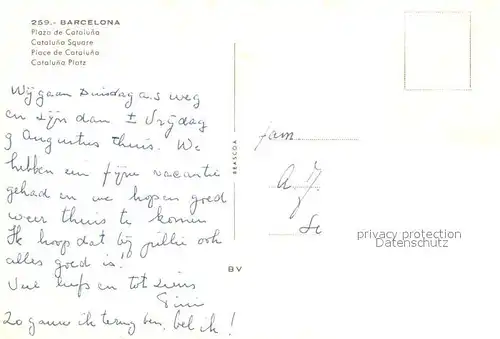 259.- BARCELONA
Plaza de Cataluña
Cataluña Square
Place de Cataluña
Cataluña Platz
Wij gaan Dinsdag a.s weg
en zijn dan ± Vrijdag
9 Augustus thuis. We
hebben een fijne vacantie
gehad en we hopen goed
weer thuis te komen
Ik hoop dat bij jullie ook
alles goed is!
Veel liefs en tot ziens
Zo gauw ik terug ben, bel ik!
BEASCOA
BV
fam.
privacy protection
Datenschutz